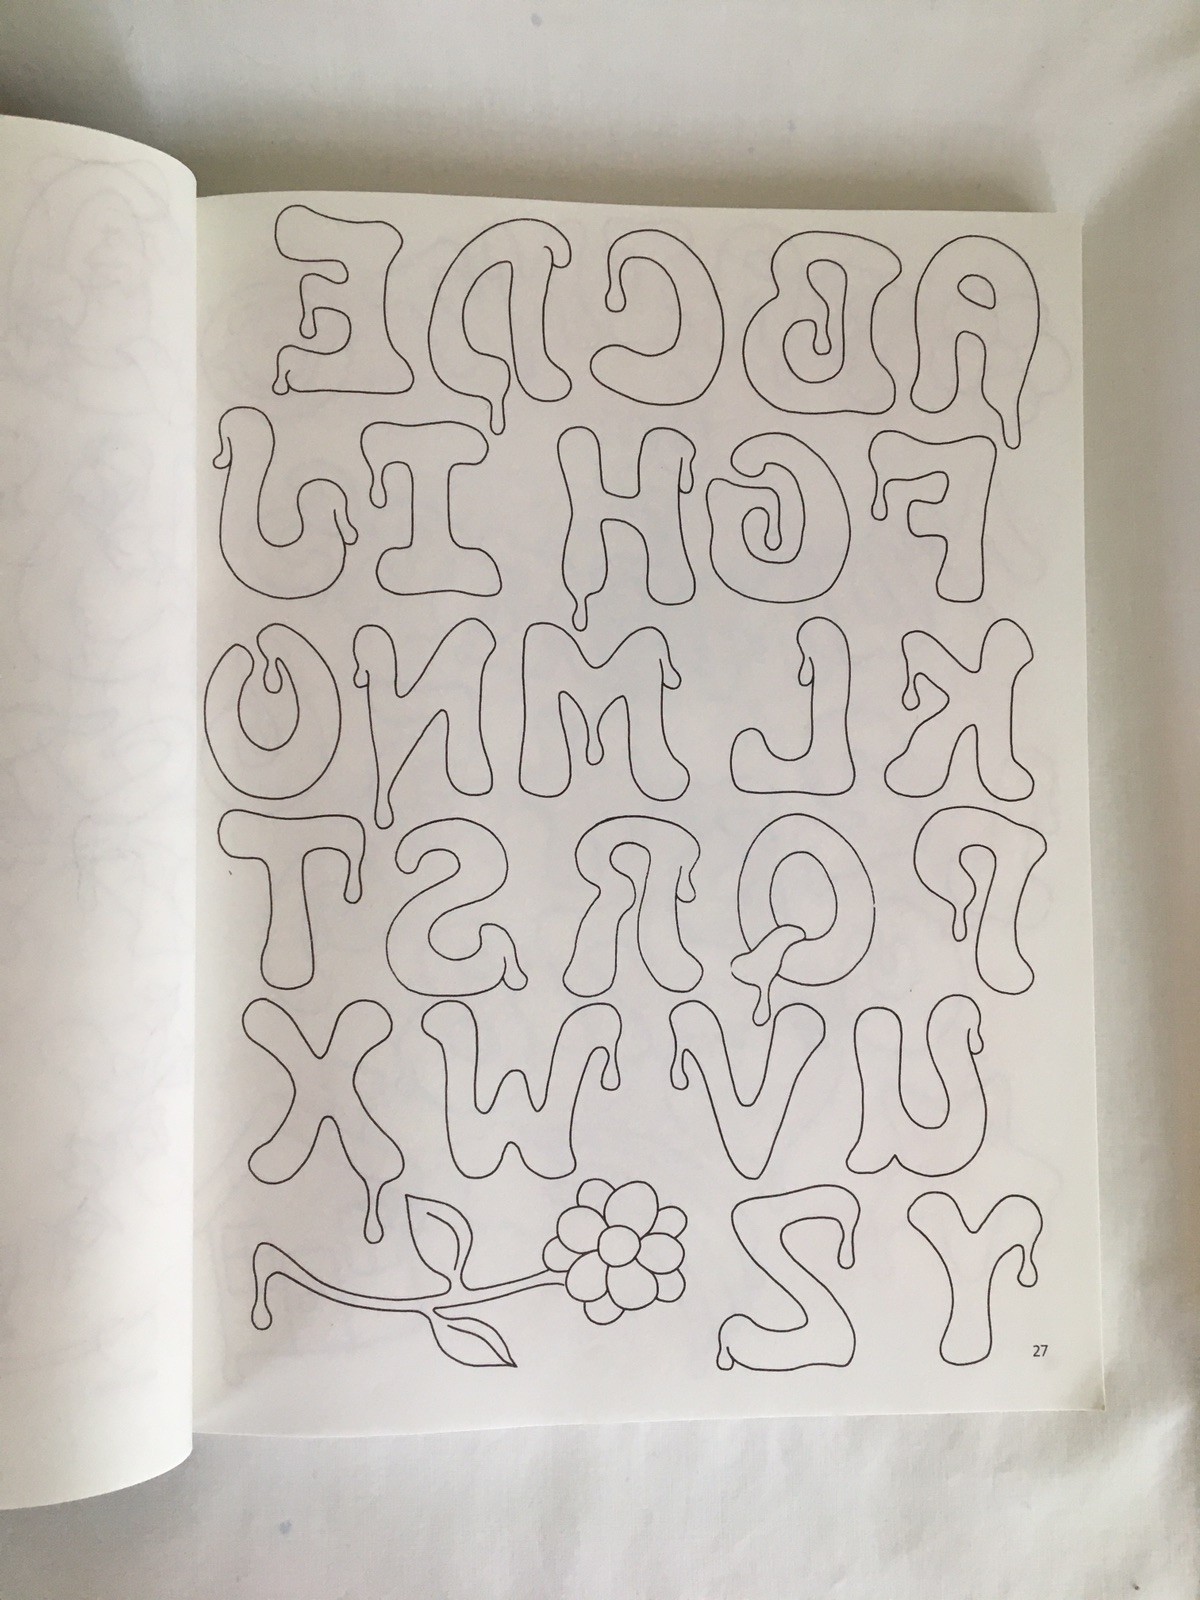 A B C D E
F G H I J
K L M N O
P Q R S T
U V W X
Y Z
27